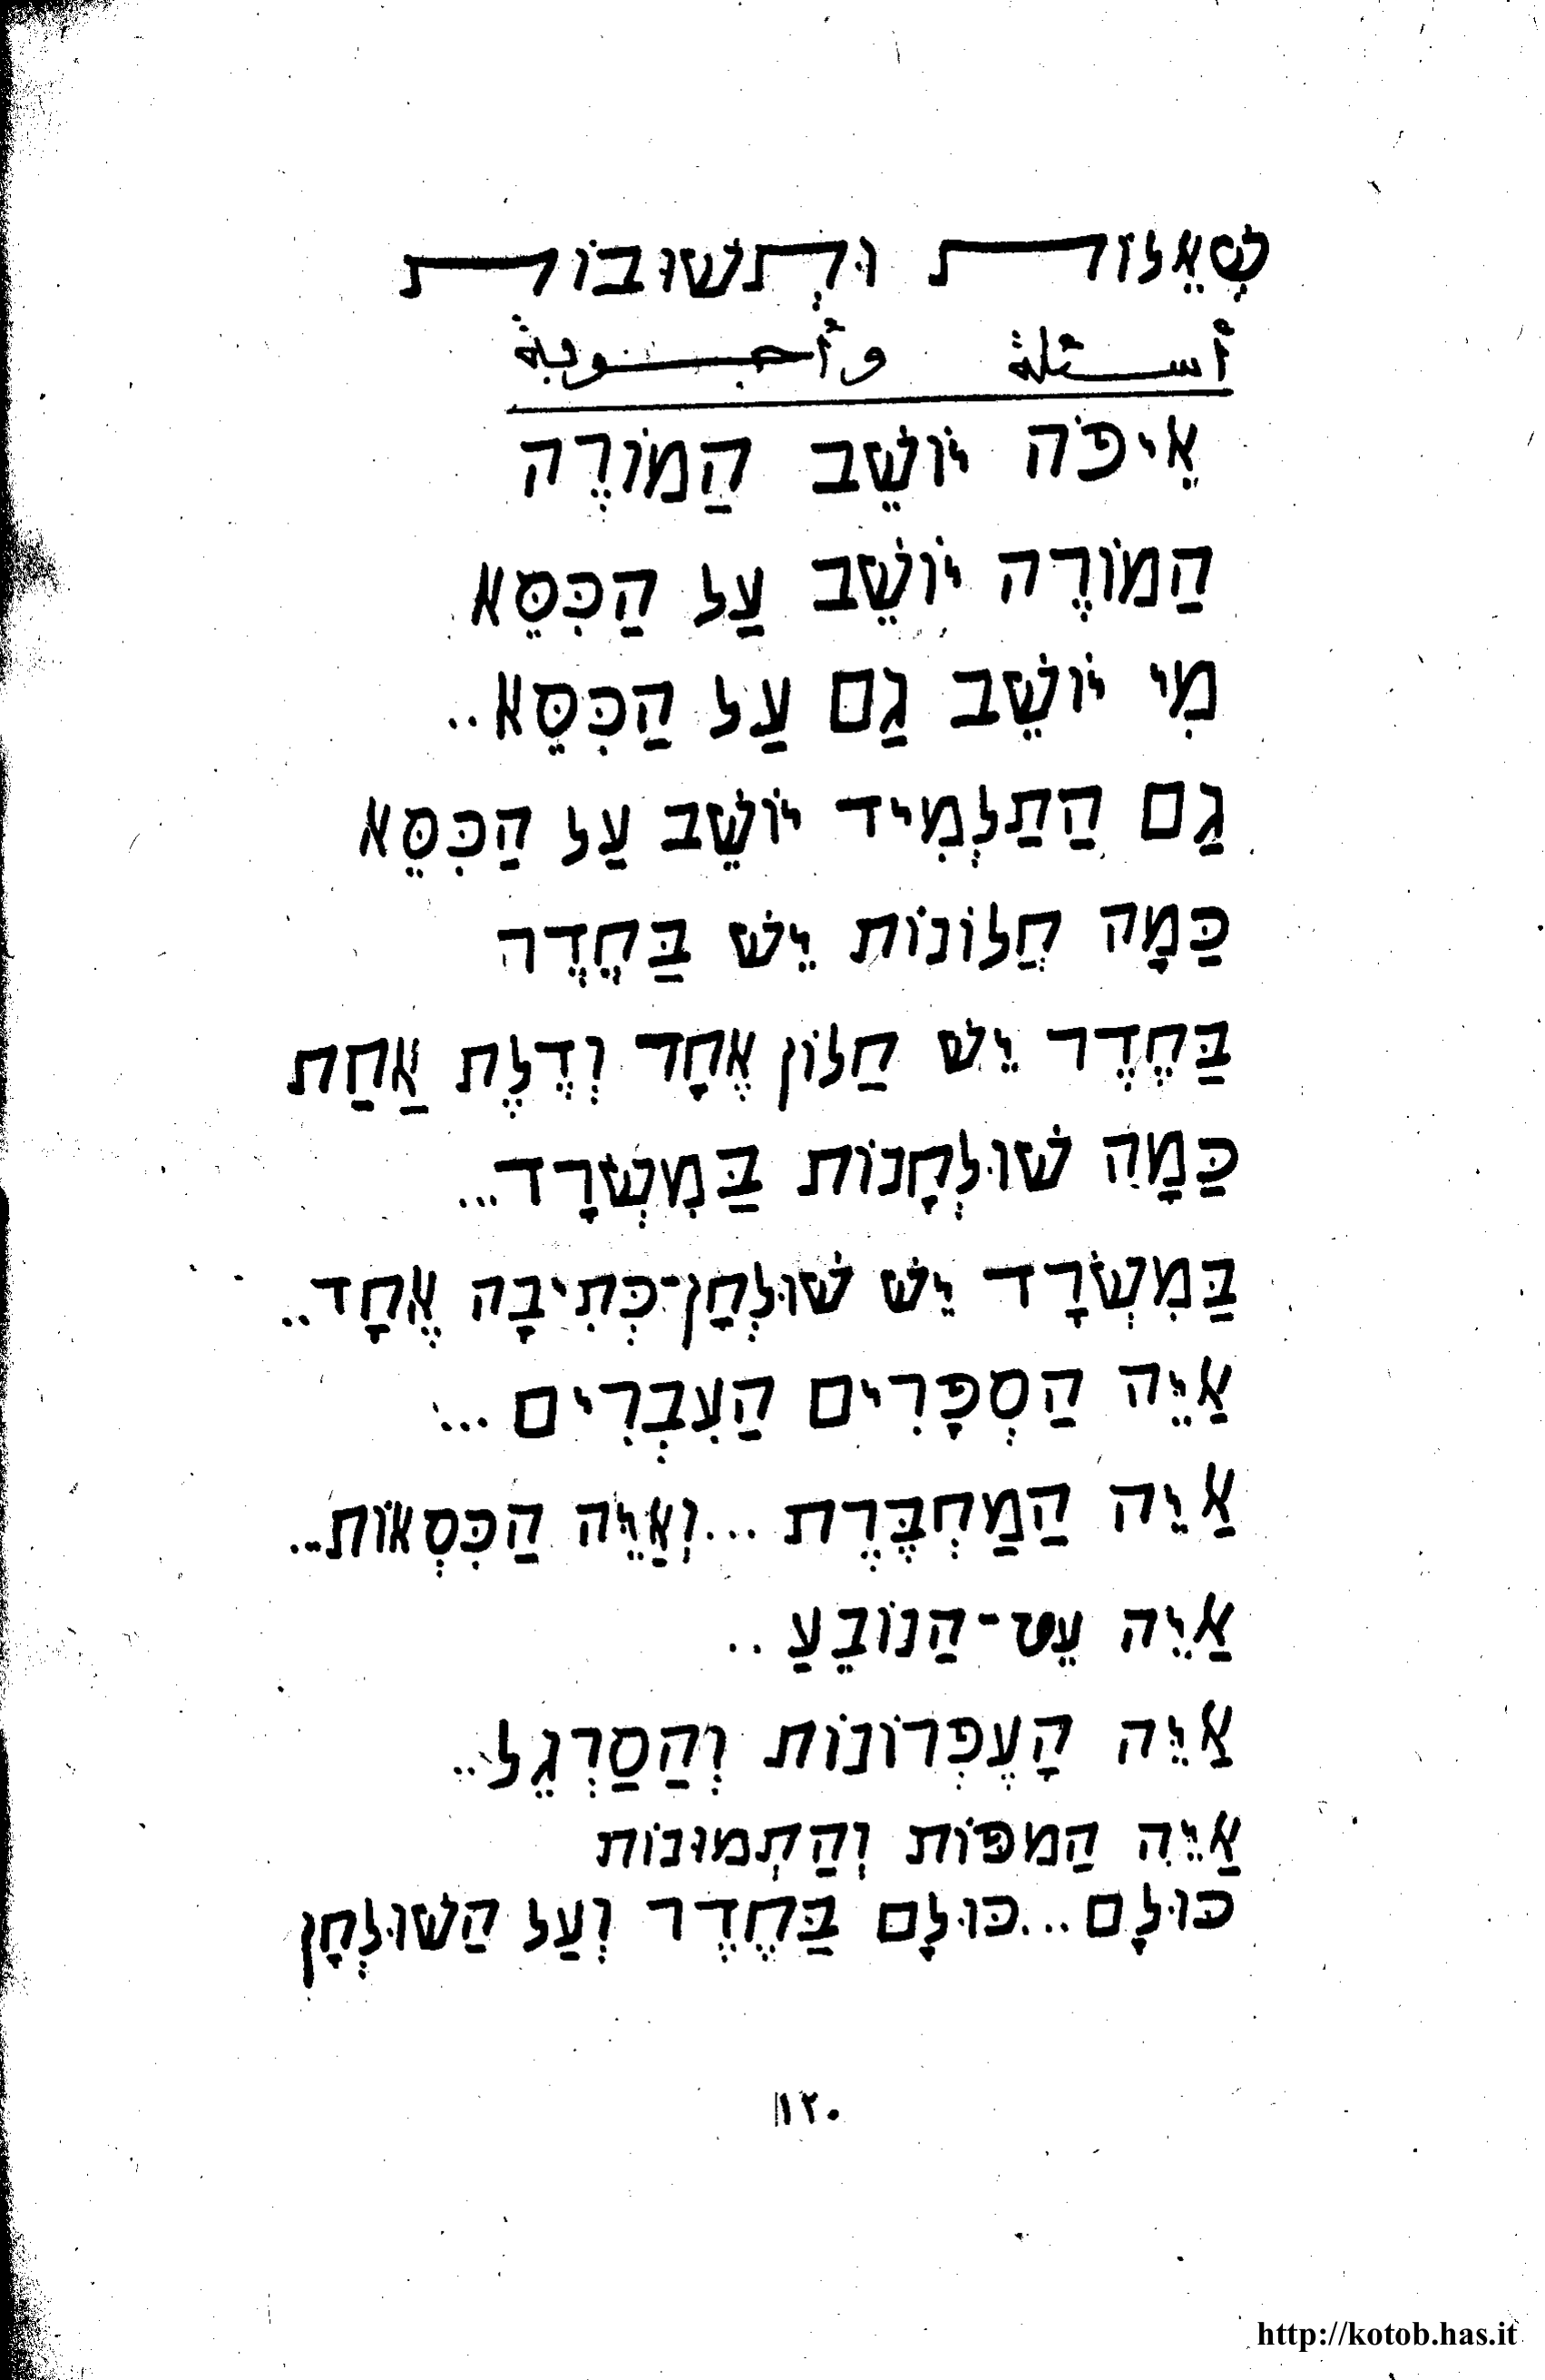 שְׁאֵלוֹת וּתְשׁוּבוֹת
أسئلة وأجوبة
אֵיפֹה יוֹשֵׁב הַמוֹרֶה
הַמוֹרֶה יוֹשֵׁב עַל הַכִּסֵּא
מִי יוֹשֵׁב גַם עַל הַכִּסֵּא..
גַם הַתַלְמִיד יוֹשֵׁב עַל הַכִּסֵּא
כַּמָה חֲלוֹנוֹת יֵשׁ בַּחֶדֶר
בַּחֶדֶר יֵשׁ חַלוֹן אֶחָד וְדֶלֶת אַחַת
כַּמָה שׁוּלְחָנוֹת בַּמִשְׂרָד...
בַּמִשְׂרָד יֵשׁ שׁוּלְחָן-כְּתִיבָה אֶחָד..
אַיֵּה הַסְפָּרִים הַעִבְרִים...
אַיֵה הַמַחְבֶּרֶת ...וְאַיֵּה הַכִּסְאוֹת..
אַיֵּה עֵט-הַנוֹבֵעַ..
אַיֵּה הָעֶפְרוֹנוֹת וְהַסַרְגֵל..
אַיֵּה הַמפּוֹת וְהַתְמוּנוֹת
כּוּלָם...כּוּלָם בַּחֶדֶר וְעַל הַשׁוּלְחָן
١٢٠
http://kotob.has.it